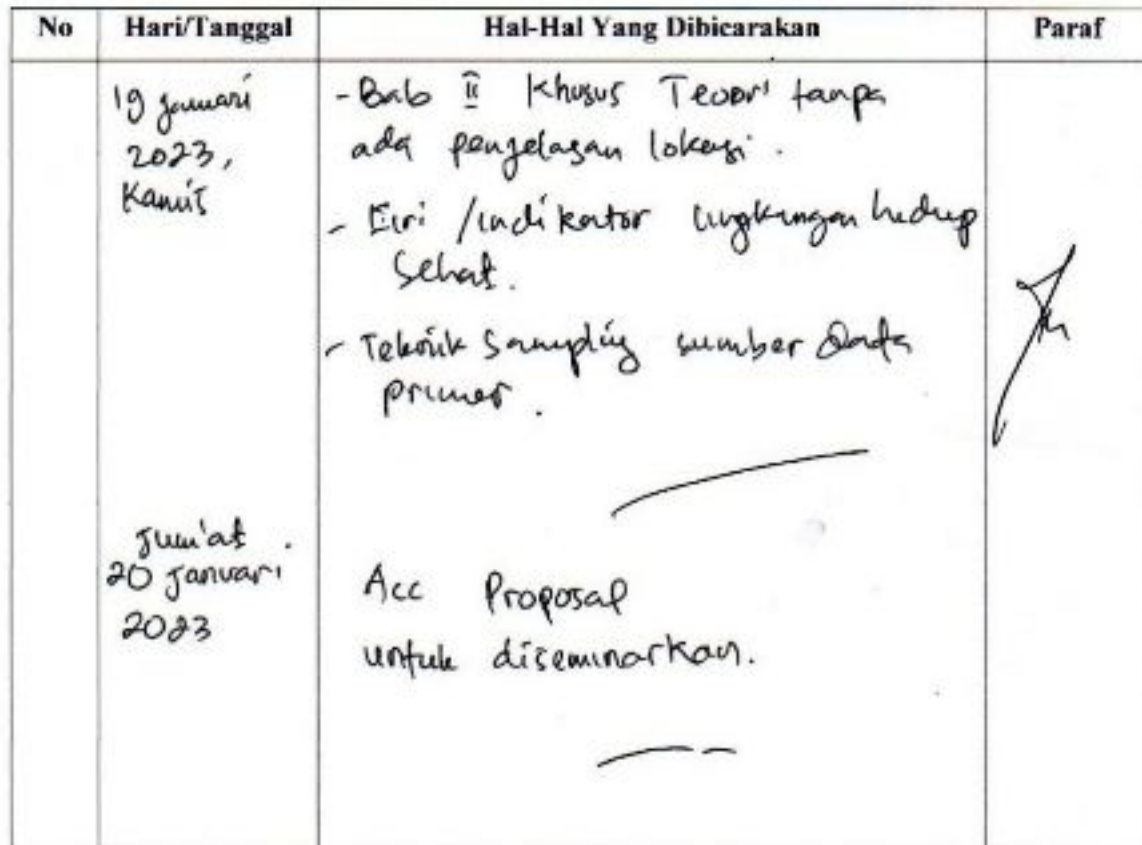 No Hari/Tanggal Hal-Hal Yang Dibicarakan Paraf
19 Januari
2023,
Kamis
- Bab II Khusus Teoori tanpa
ada penjelasan lokasi.
- Ciri /indikator lingkungan hidup
Sehat.
- Teknik Sampling sumber Data
primer.
Jum'at.
20 Januari
2023
Acc Proposal
untuk diseminarkan.